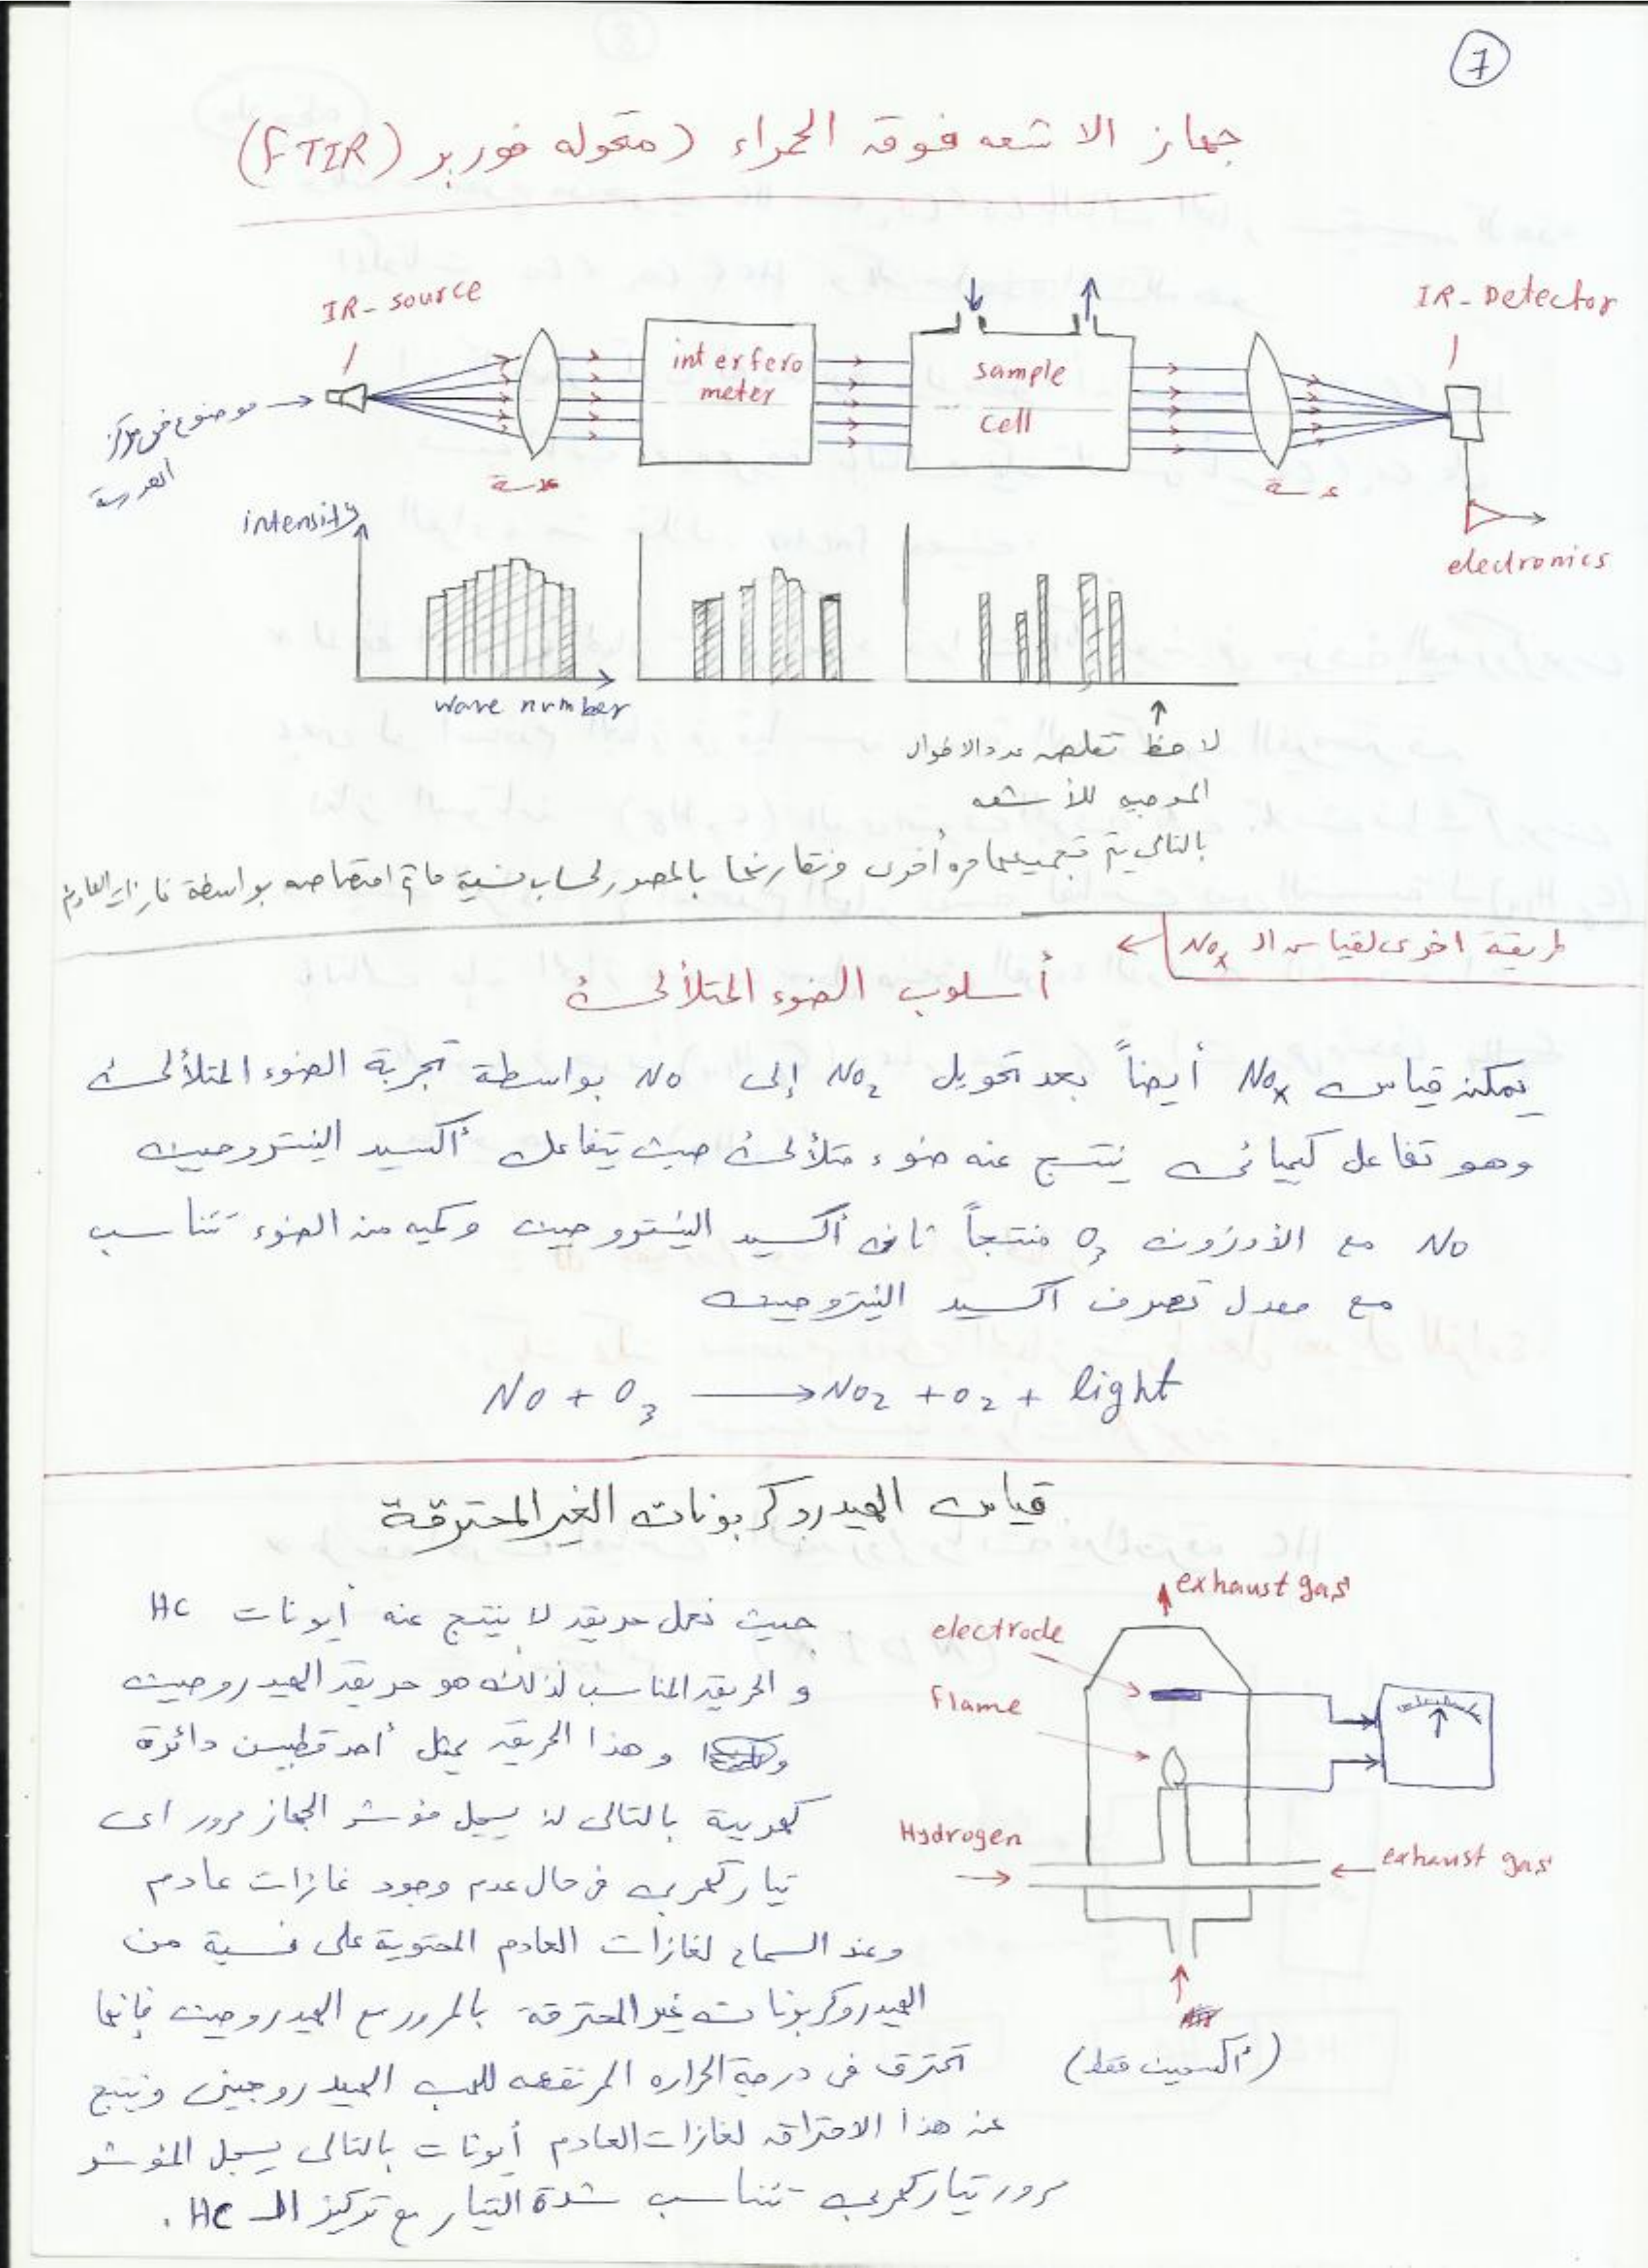 7
جهاز الاشعه فوق الحمراء (مقوله فورير (FTIR)
IR-source
IR-Detector
interfero
meter
sample
cell
موضوع في مركز
العدسة
عدسة
عدسة
electronics
intensity
wave number
لاحظ تقلص عدد الاطوال
الموجيه للأشعه
بالتالي يتم تجميعها مره أخرى ونقارنها بالمصدر لحساب نسبة ما تم امتصاصه بواسطة غازات العادم
طريقة اخرى لقياس الـ NOx
أسلوب الضوء المتلألئ
يمكن قياس NOx أيضاً بعد تحويل NO2 إلى NO بواسطة تجربة الضوء المتلألئ
وهو تفاعل كيميائي ينتج عنه ضوء متلألئ حيث يتفاعل أكسيد النيتروجين
NO مع الأوزون O3 منتجاً ثاني أكسيد النيتروجين وكميه من الضوء تتناسب
مع معدل تصرف اكسيد النيتروجين
NO + O3 → NO2 + O2 + light
قياس الهيدروكربونات الغير المحترقة
exhaust gas
electrode
flame
Hydrogen
exhaust gas
(أكسجين فقط)
حيث نعمل حريق لا ينتج عنه أيونات HC
و الحريق المناسب لذلك هو حريق الهيدروجين
وهذا الحريق يمثل أحد قطبين دائرة
كهربية بالتالي لن يسجل مؤشر الجهاز مرور اى
تيار كهربي في حال عدم وجود غازات عادم
وعند السماح لغازات العادم المحتوية على نسبة من
الهيدروكربونات غير المحترقة بالمرور مع الهيدروجين فإنها
تحترق في درجة الحراره المرتفعه للهب الهيدروجيني وينتج
عن هذا الاحتراق لغازات العادم أيونات بالتالي يسجل المؤشر
مرور تيار كهربي تتناسب شدة التيار مع تركيز الـ HC .